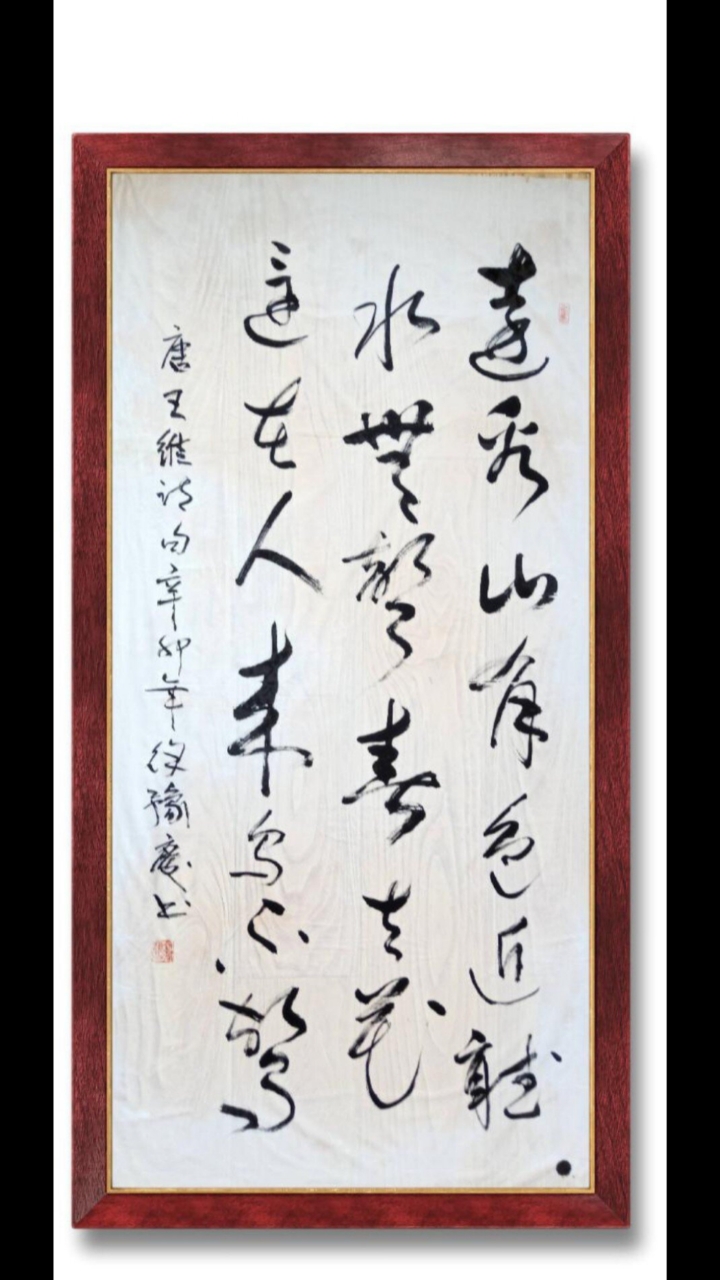 遠看山有色近聽
水無聲春去花
還在人來鳥不驚
唐王維詩句辛卯年徐豫慶书